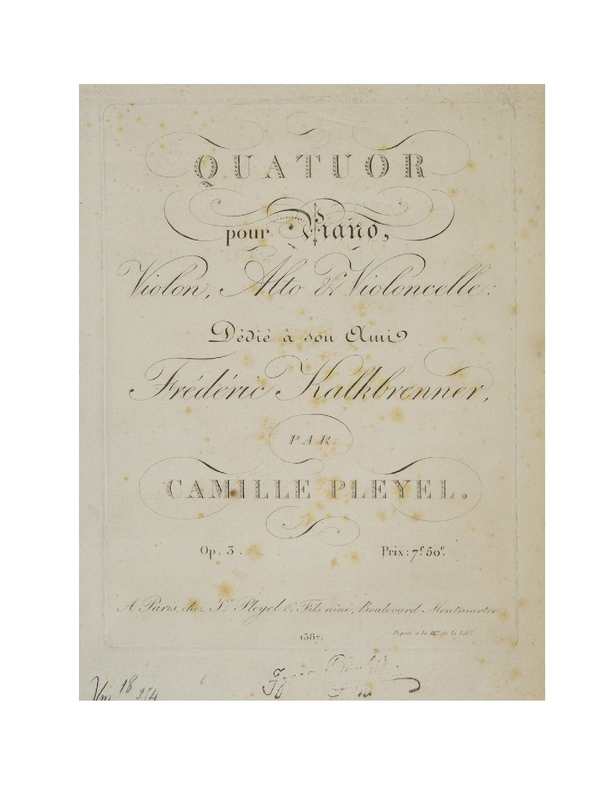 QUATUOR
pour Piano,
Violon, Alto & Violoncelle:
Dédié à son Ami
Frédéric Kalkbrenner,
PAR
CAMILLE PLEYEL.
Op. 3. Prix: 7f. 50c.
A Paris, chez Ice. Pleyel & Fils aîné, Boulevard Montmartre
1387.
Déposé à la